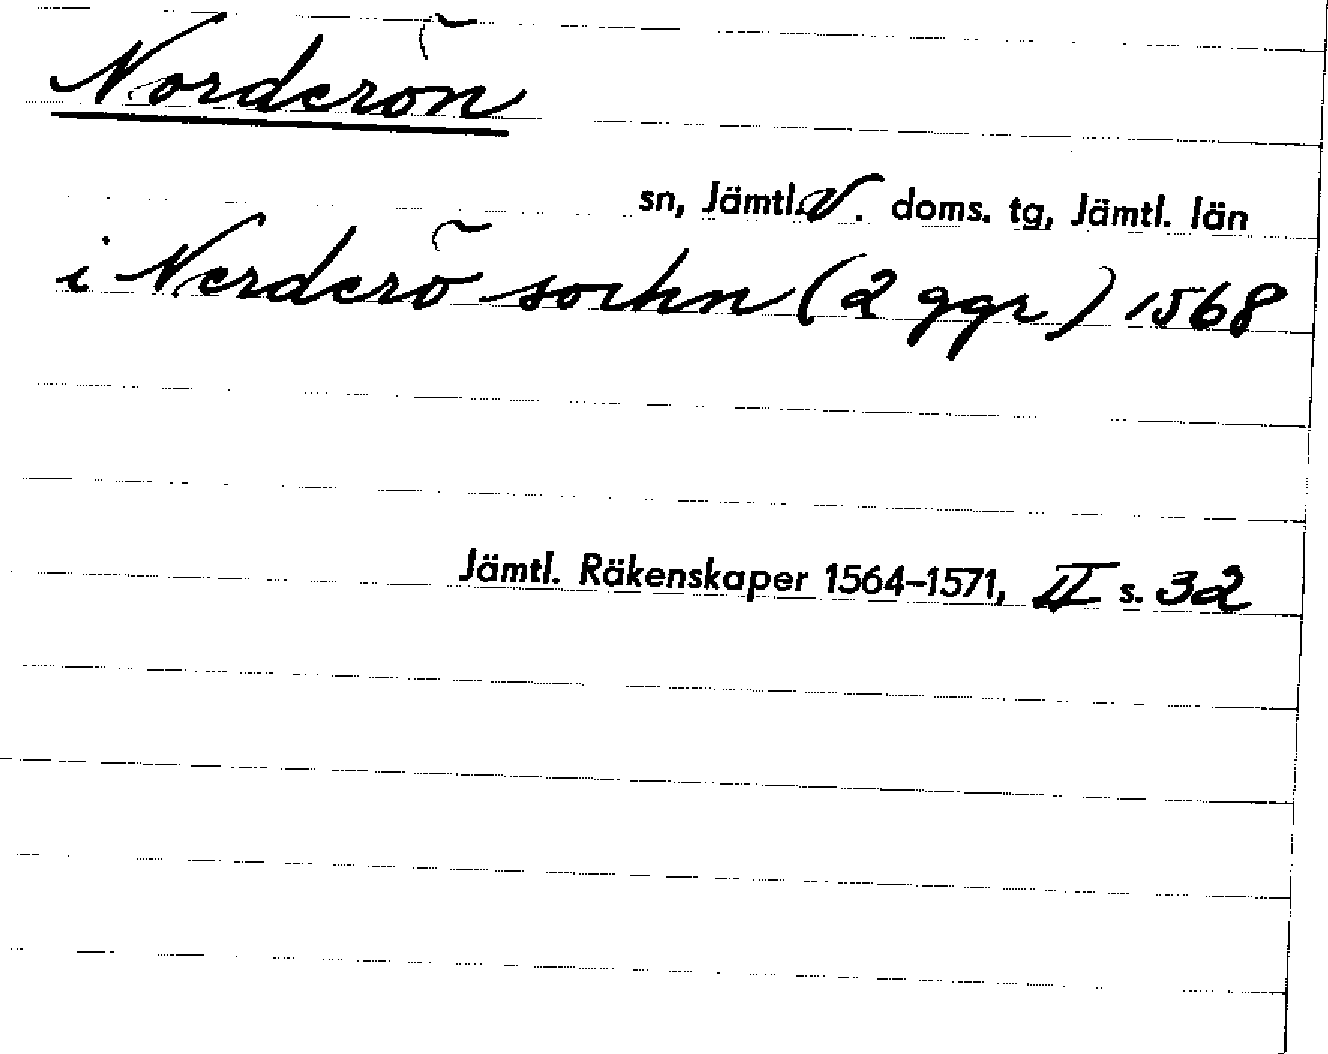 Norderön
sn, Jämtl. V. doms. tg, Jämtl. län
i Nerderö sockn (2 ggr) 1568
Jämtl. Räkenskaper 1564–1571, II s. 32